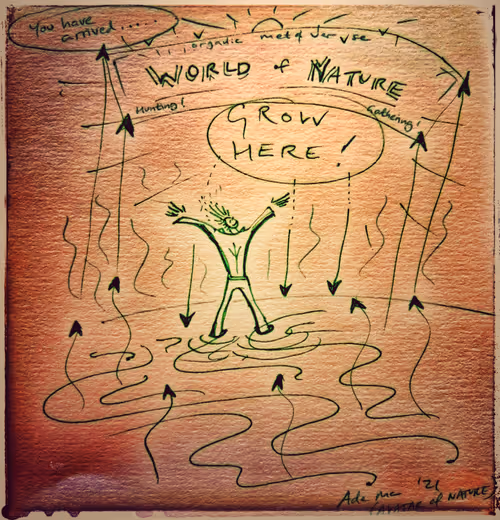 You have
arrived.....
organic metaverse
WORLD of NATURE
Hunting!
Gathering!
GROW
HERE!
Ade Mc '21
(AVATAR of NATURE)